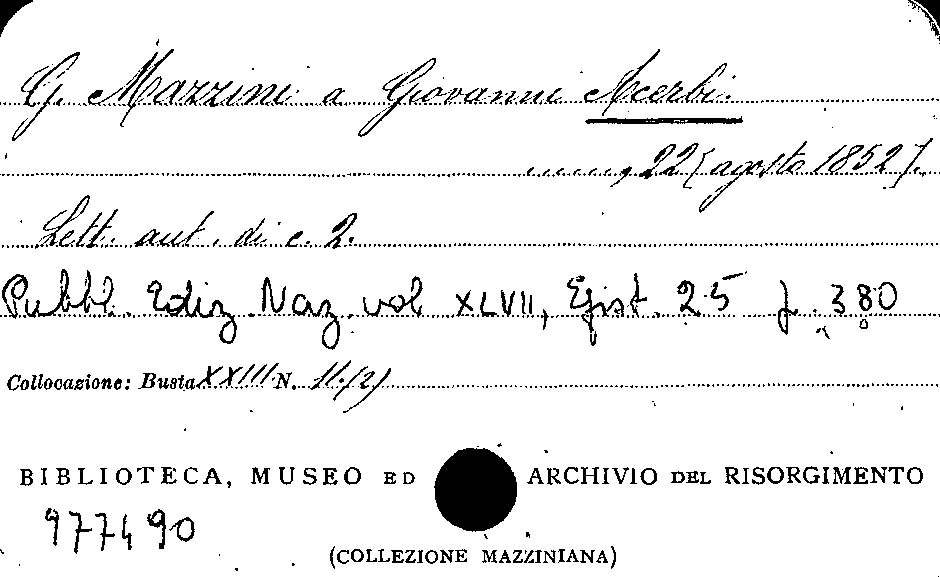 G. Mazzini a Giovanni Acerbi.
......, 22 [agosto 1852].
Lett. aut. di c. 2.
Pubbl. Ediz. Naz. vol XLVII, Epist. 25 f. 380
Collocazione: Busta XXIII N. 11.(2)
BIBLIOTECA, MUSEO ED ARCHIVIO DEL RISORGIMENTO
977490
(COLLEZIONE MAZZINIANA)